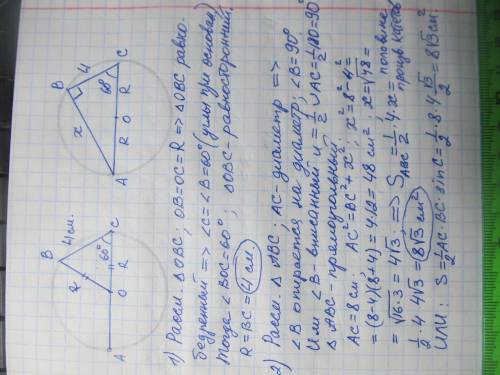 B
4 см.
R
60°
A
O
R
C
B
x
4
60°
A
R
O
R
C
1) Рассм. △OBC; OB=OC=R => △OBC равно-
бедренный => ∠C=∠B=60° (углы при основан.)
Тогда ∠BOC=60°; △OBC-равносторонний,
R=BC=4 см.
2) Рассм. △ABC; AC-диаметр =>
∠B опирается на диаметр; ∠B=90°
Или ∠B-вписанный и =1/2 ◡AC=1/2·180=90°
△ABC-прямоугольный,
AC=8 см; AC²=BC²+x²; x²=8²-4²=
=(8-4)(8+4)=4·12=48 см²; x=√48=
=√16·3=4√3. => S ABC=1/2·4·x= половина произв. катетов
1/2·4·4√3=8√3 см²
Или: S=1/2AC·BC·sinC=1/2·8·4·√3/2=8√3 см².